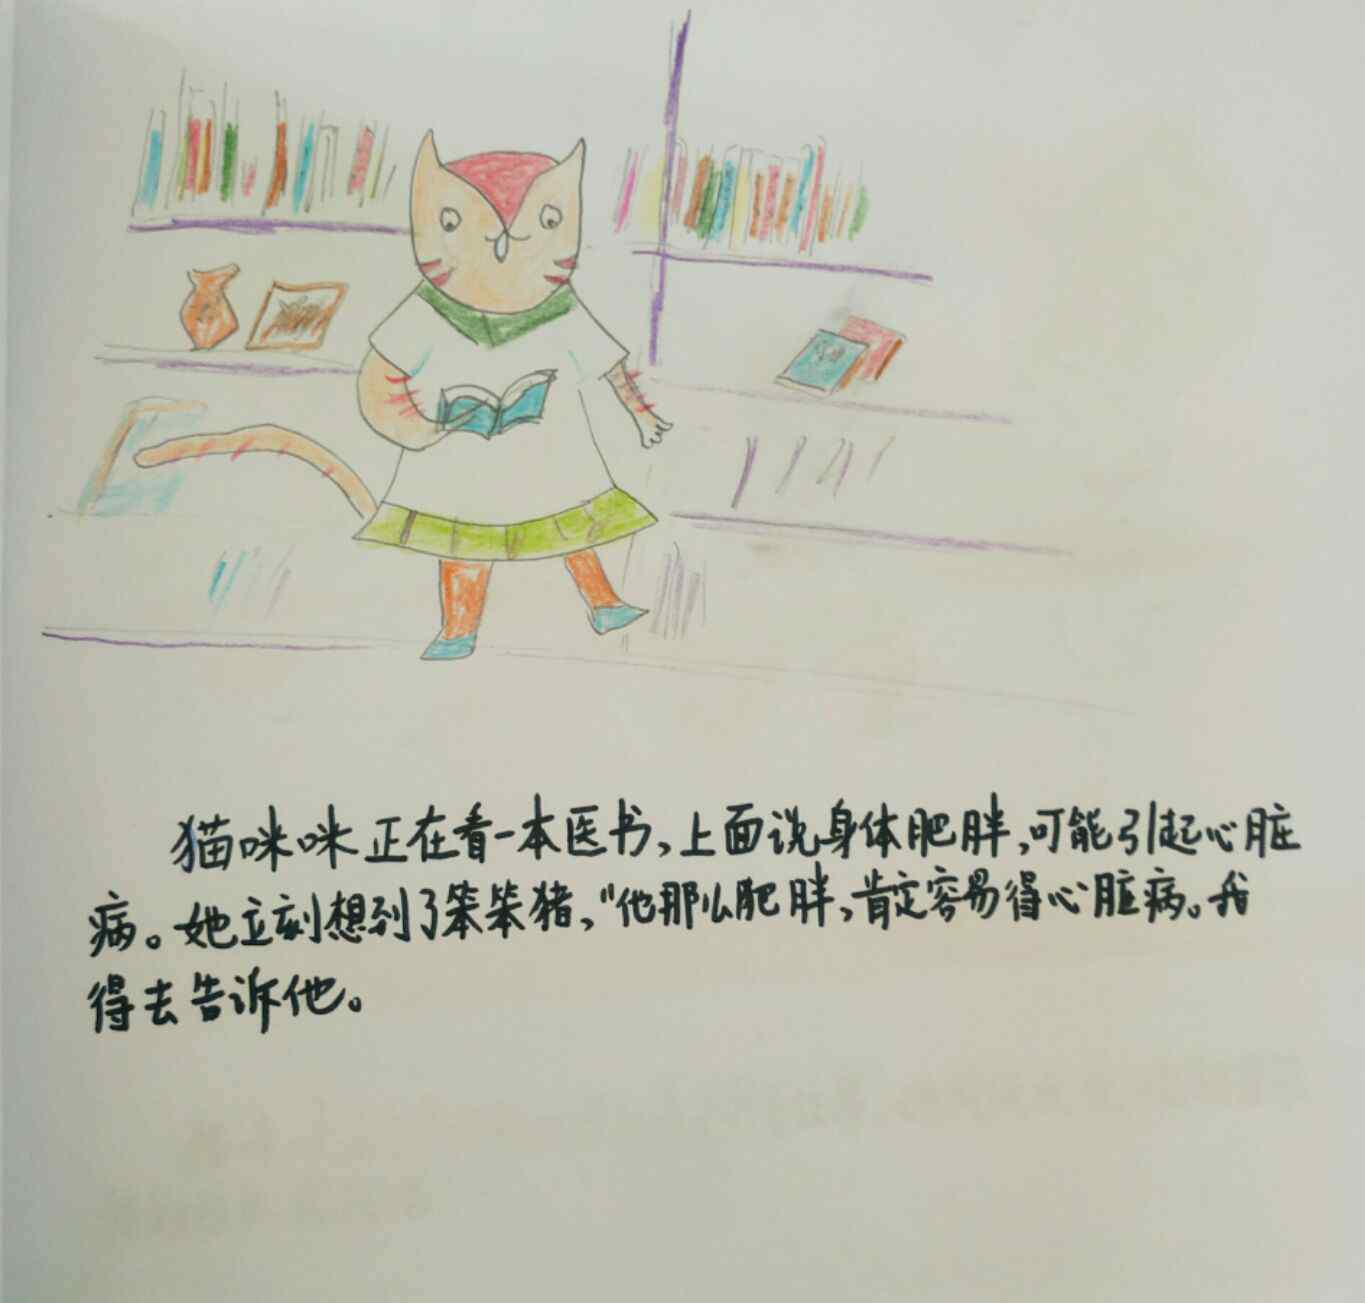 猫咪咪正在看一本医书,上面说身体肥胖,可能引起心脏
病。她立刻想到了笨笨猪,“他那么肥胖,肯定容易得心脏病。我
得去告诉他。